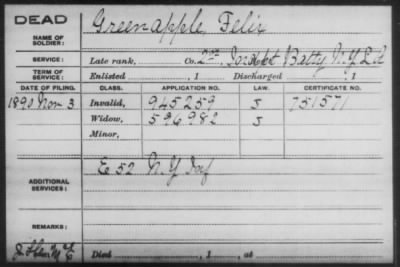 DEAD
Greenapple Felix
NAME OF SOLDIER:
SERVICE: Late rank, Co. 2nd Indpt Batty N.Y. L.A
TERM OF SERVICE: Enlisted , 1 Discharged , 1
DATE OF FILING. CLASS. APPLICATION NO. LAW. CERTIFICATE NO.
1890 Nov 3 Invalid, 945259 J 751571
Widow, 596982 J
Minor,
E 52 N.Y. Inf
ADDITIONAL SERVICES:
REMARKS:
Died , 1 , at